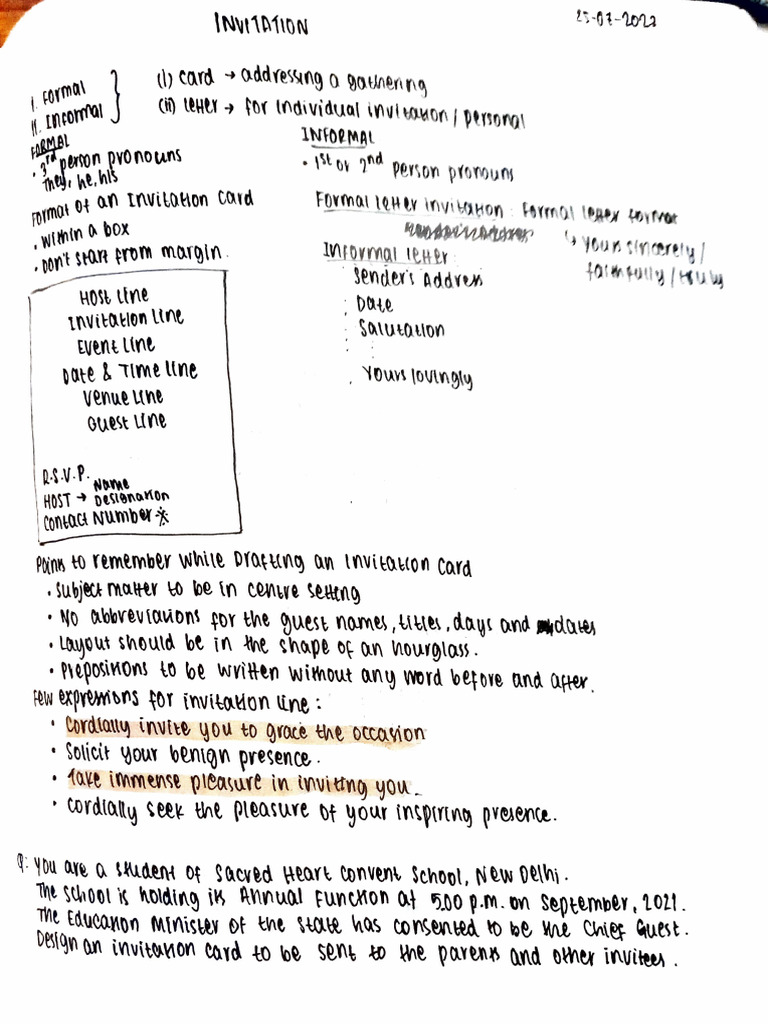 INVITATION
25-07-2022
I. Formal
II. Informal
(i) card → addressing a gathering
(ii) letter → for individual invitation / personal
FORMAL
• 3rd person pronouns
They, he, his
Format of an Invitation Card
• Within a box
• Don't start from margin.
INFORMAL
• 1st or 2nd person pronouns
Formal letter invitation: Formal letter format
↳ Yours sincerely /
faithfully / truly
Informal letter:
Sender's Address
Date
Salutation
Yours lovingly
Host line
Invitation line
Event line
Date & Time line
Venue line
Guest line
R.S.V.P.
HOST → Name
Designation
Contact Number *
Points to remember while Drafting an Invitation Card
• Subject matter to be in centre setting
• No abbreviations for the guest names, titles, days and dates
• Layout should be in the shape of an hourglass.
• Prepositions to be written without any word before and after.
Few expressions for invitation line:
• Cordially invite you to grace the occasion
• Solicit your benign presence.
• Take immense pleasure in inviting you.
• Cordially seek the pleasure of your inspiring presence.
Q: You are a student of Sacred Heart Convent School, New Delhi.
The school is holding its Annual Function at 5.00 p.m. on September, 2021.
The Education Minister of the State has consented to be the Chief Guest.
Design an invitation card to be sent to the parents and other invitees.